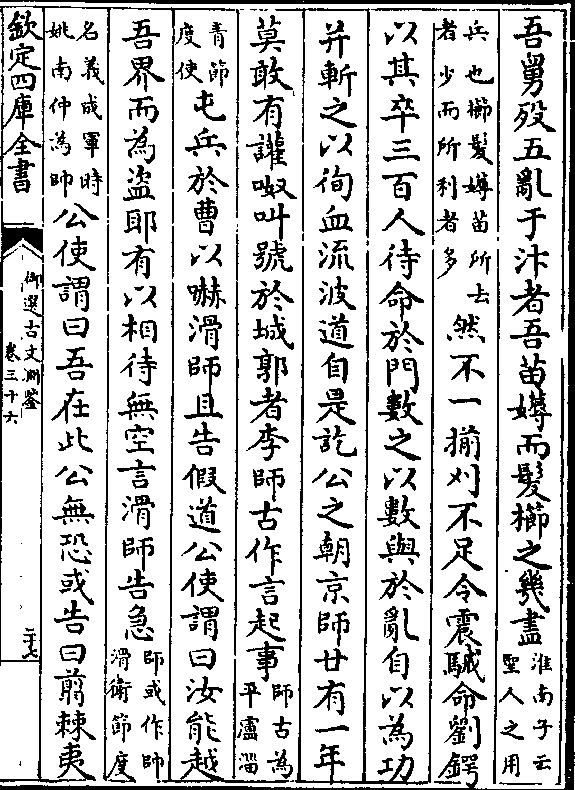 吾舅歿五亂于汴者吾苗媷而髮櫛之幾盡淮南子云聖人之用
兵也櫛髮媷苗所去者少而所利者多然不一揃刈不足令震駴命劉鍔
以其卒三百人待命於門數之以數與於亂自以為功
并斬之以徇血流波道自是訖公之朝京師廿有一年
莫敢有讙呶叫號於城郭者李師古作言起事師古為平盧淄
青節度使屯兵於曹以嚇滑師且告假道公使謂曰汝能越
吾界而為盗耶有以相待無空言滑師告急師或作帥滑衛節度
名義成軍時姚南仲為帥公使謂曰吾在此公無恐或告曰翦棘夷
欽定四庫全書
御選古文淵鑒
卷三十六
二十七